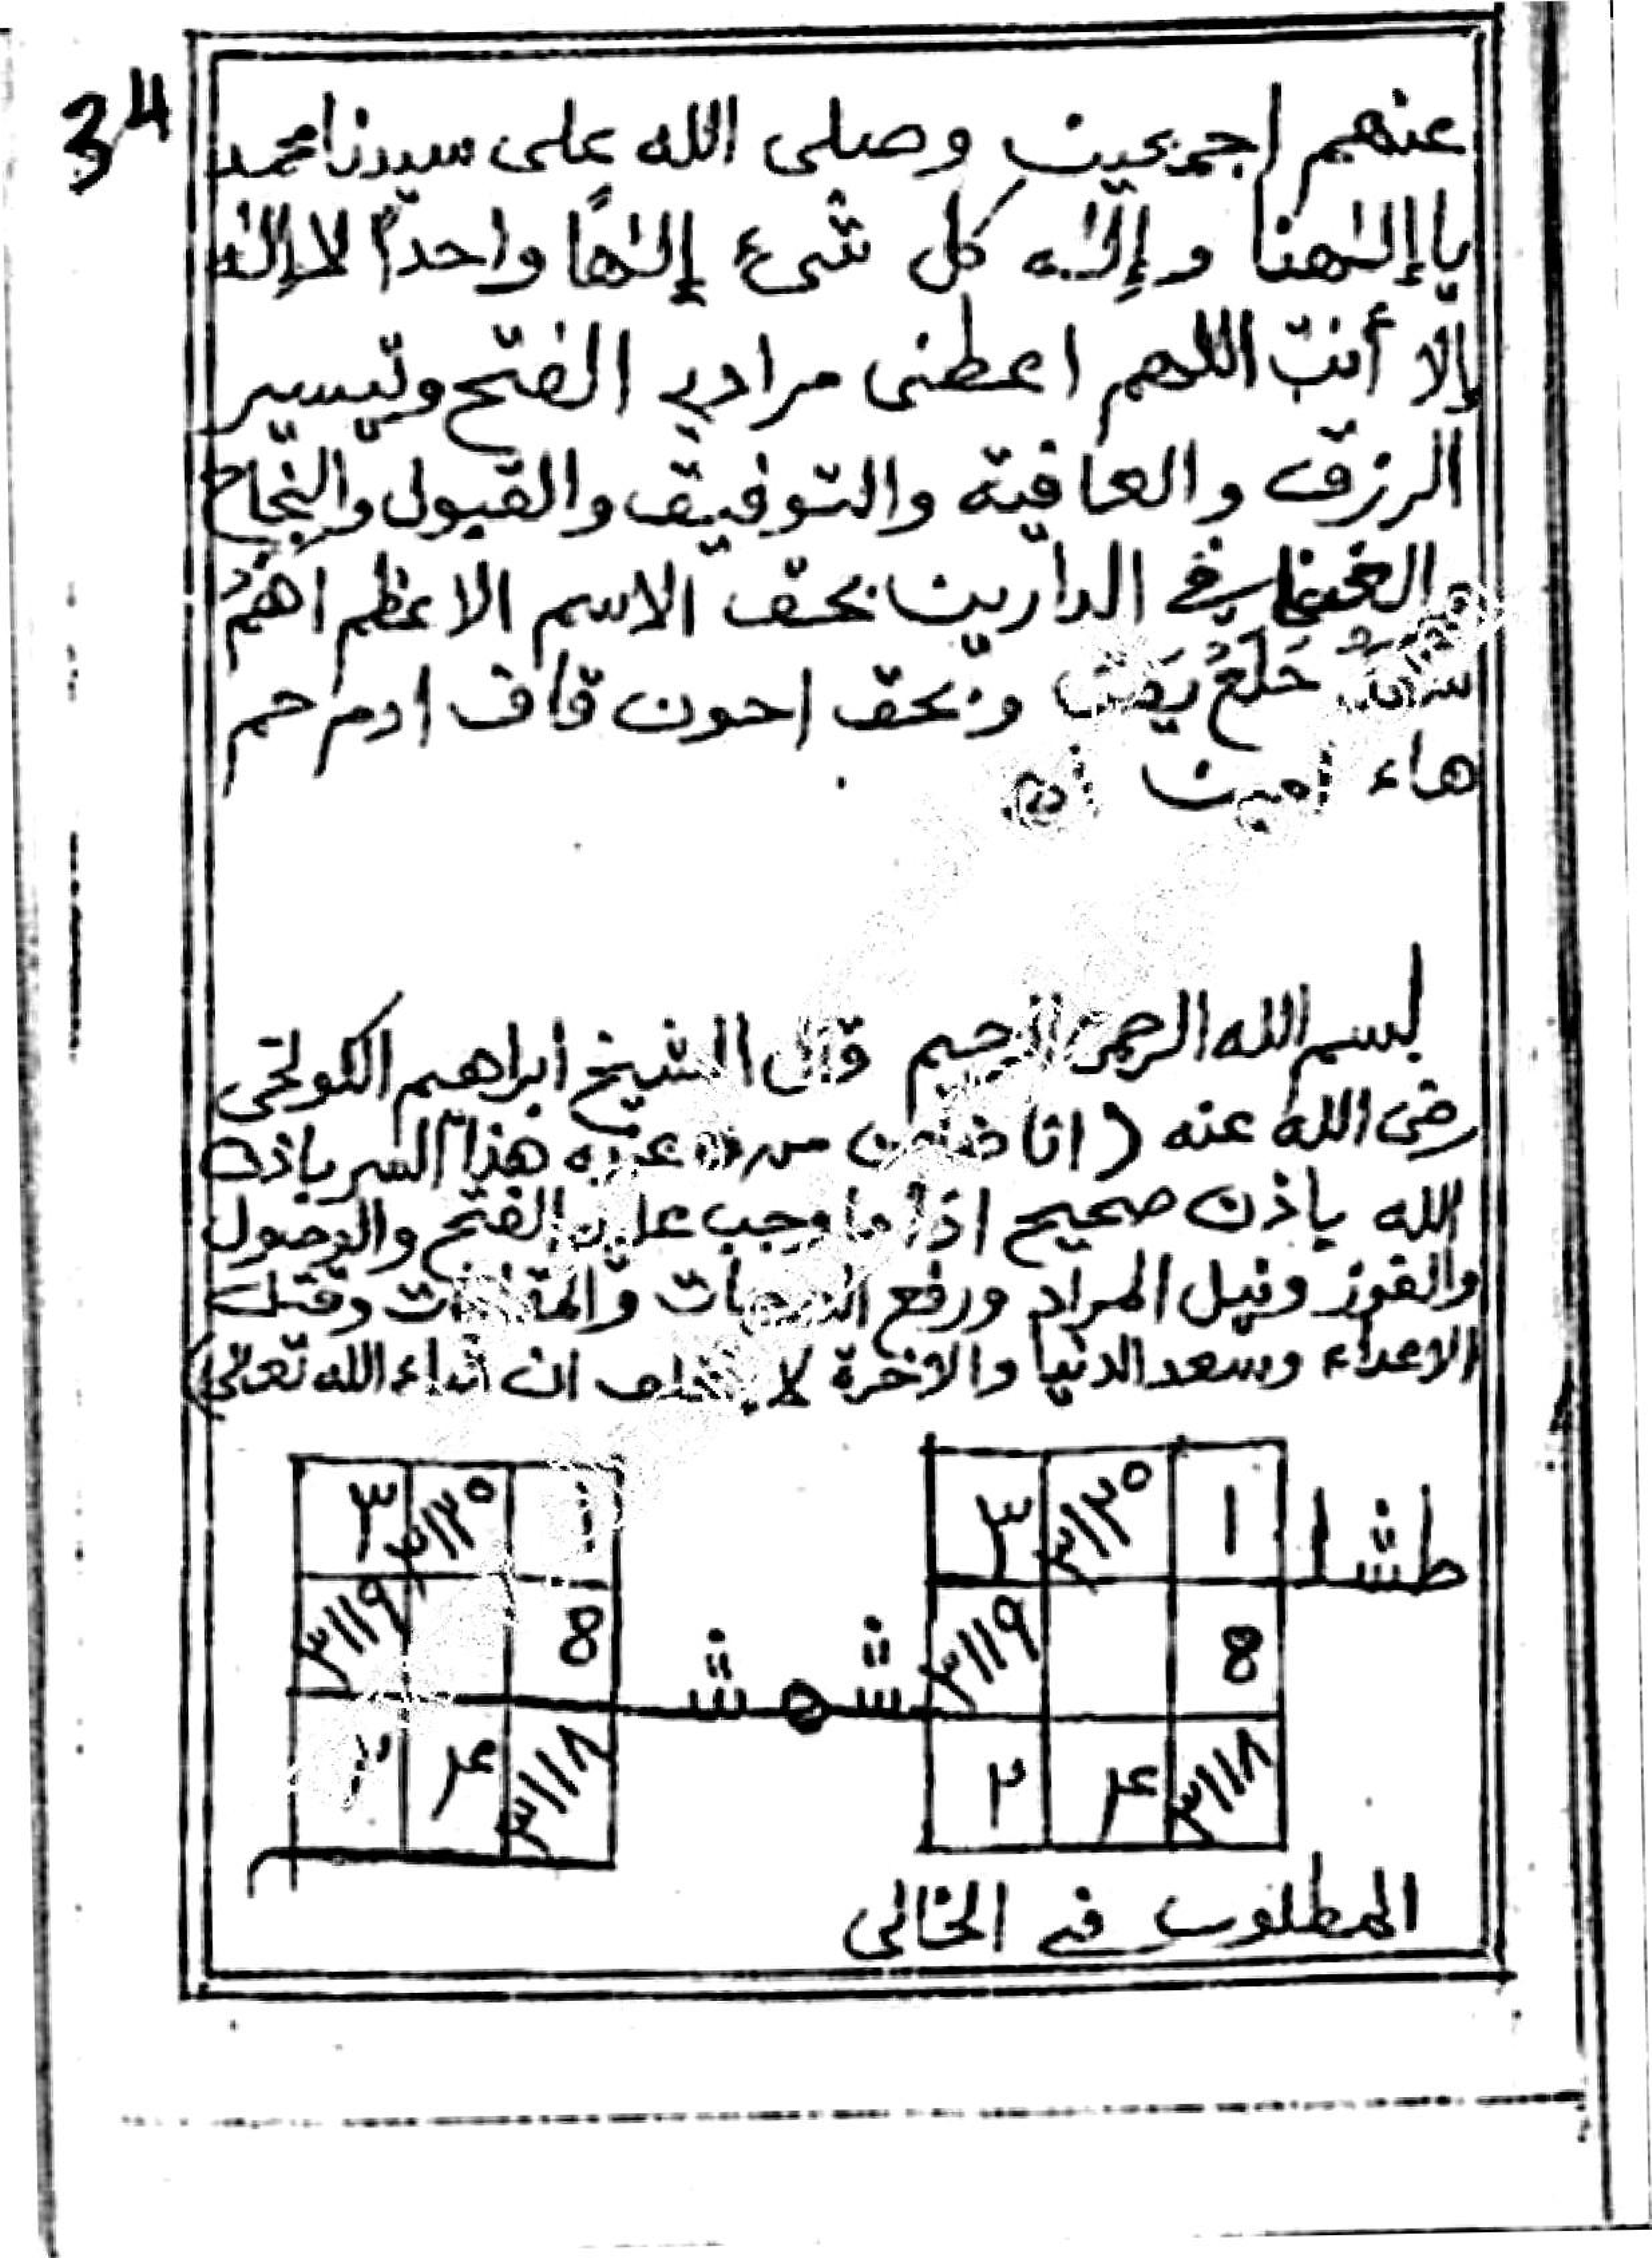 34
عنهم اجمعين وصلى الله على سيدنا محمد
يا إلٰهنا وإلٰه كل شىء إلٰهًا واحداً لا إلٰه
إلا أنت اللهم اعطنى مرادي الفتح وتيسير
الرزق والعافية والتوفيق والقبول والنجاح
والغنا في الدارين بحق الاسم الاعظم اهم
حلع وبحق احون قاف ادم حم
هاء امين
بسم الله الرحمن الرحيم قال الشيخ ابراهيم الكولخى
رضى الله عنه (انا ضامن من عنده هذا السر باذن
الله باذن صحيح اذا ما وجب عليه الفتح والوصول
والفوز ونيل المراد ورفع الدرجات والمقامات وقتل
الاعداء وسعد الدنيا والاخرة لا ان شاء الله تعالى)
طشا ١ ٣١١٢٥ ٣
8 ٣١١١٩
٣١١١٨ ۴ ٢
شهش
١ ٣١١٢٥ ٣
8 ٣١١١٩
٣١١١٨ ۴ ٢
المطلوب في الخالى